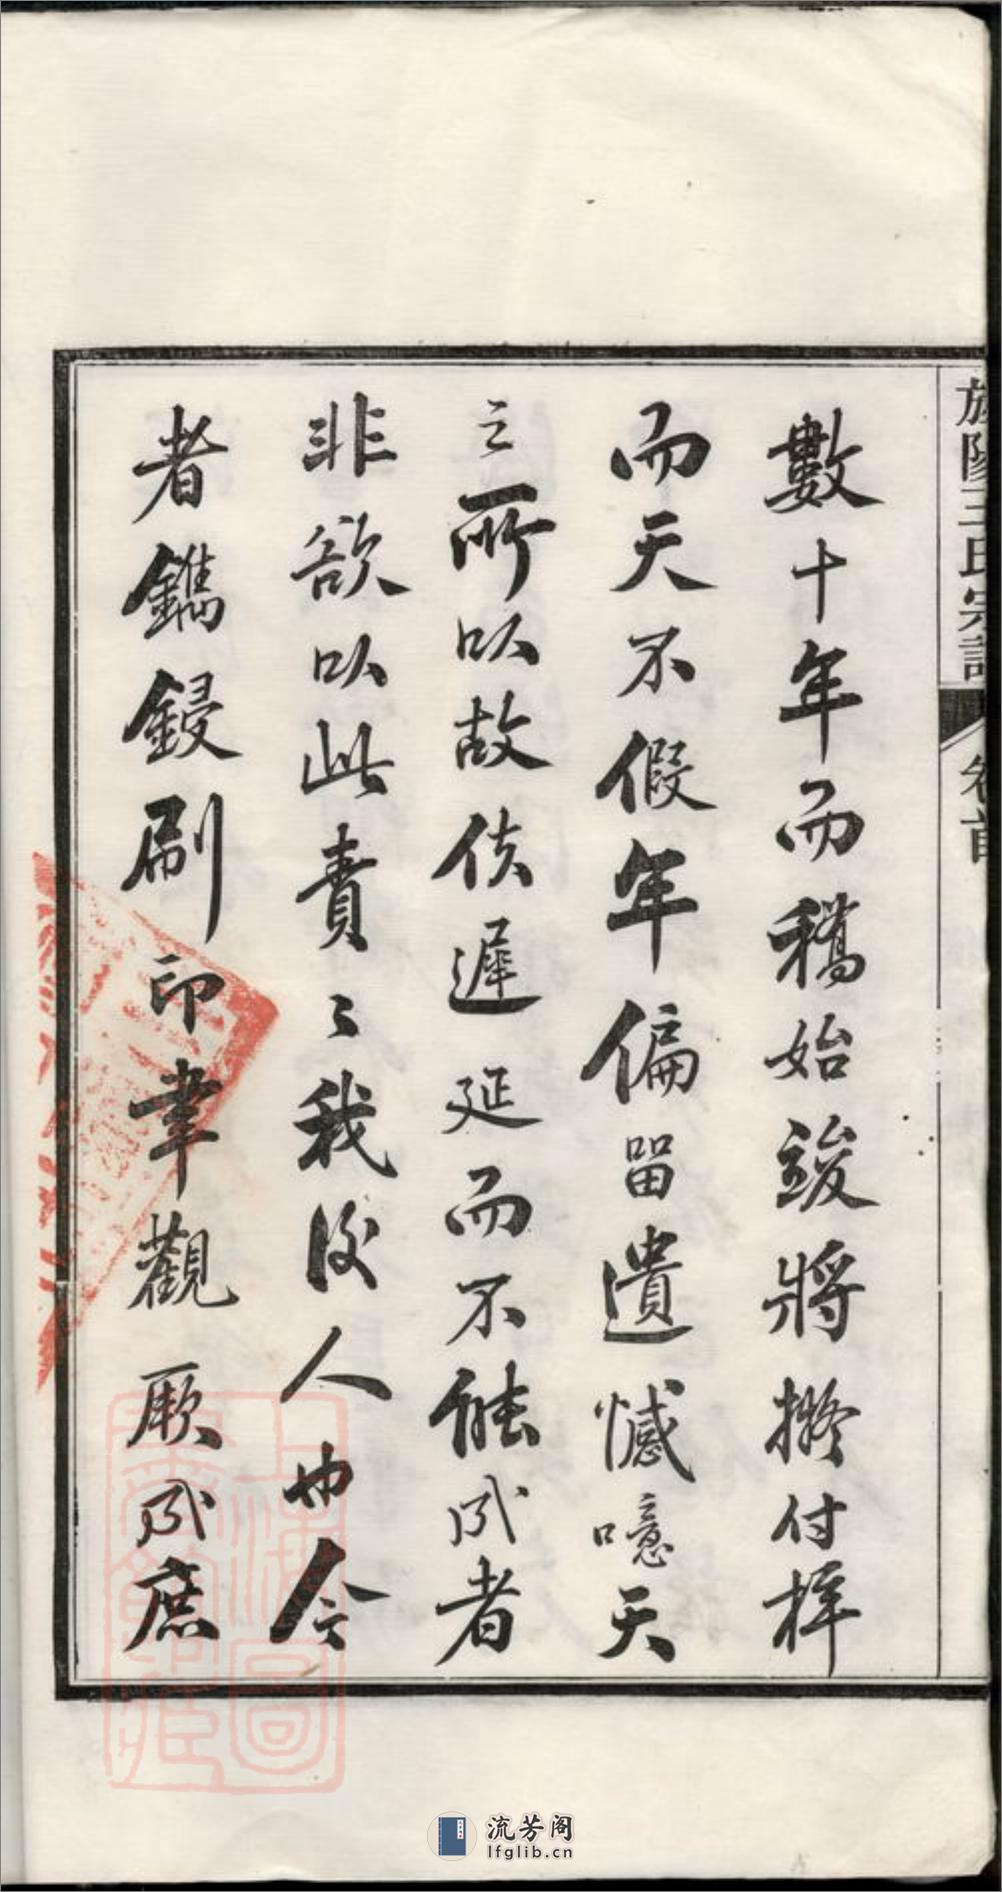 數十年而稿始竣將擬付梓
而天不假年偏畱遺憾噫天
之所以故使遲延而不能成者
非欲以此責〻我後人也今
者鐫鋟刷印聿觀厥成庶
王氏宗譜
卷首
上海圖書館藏
流芳阁
lfglib.cn